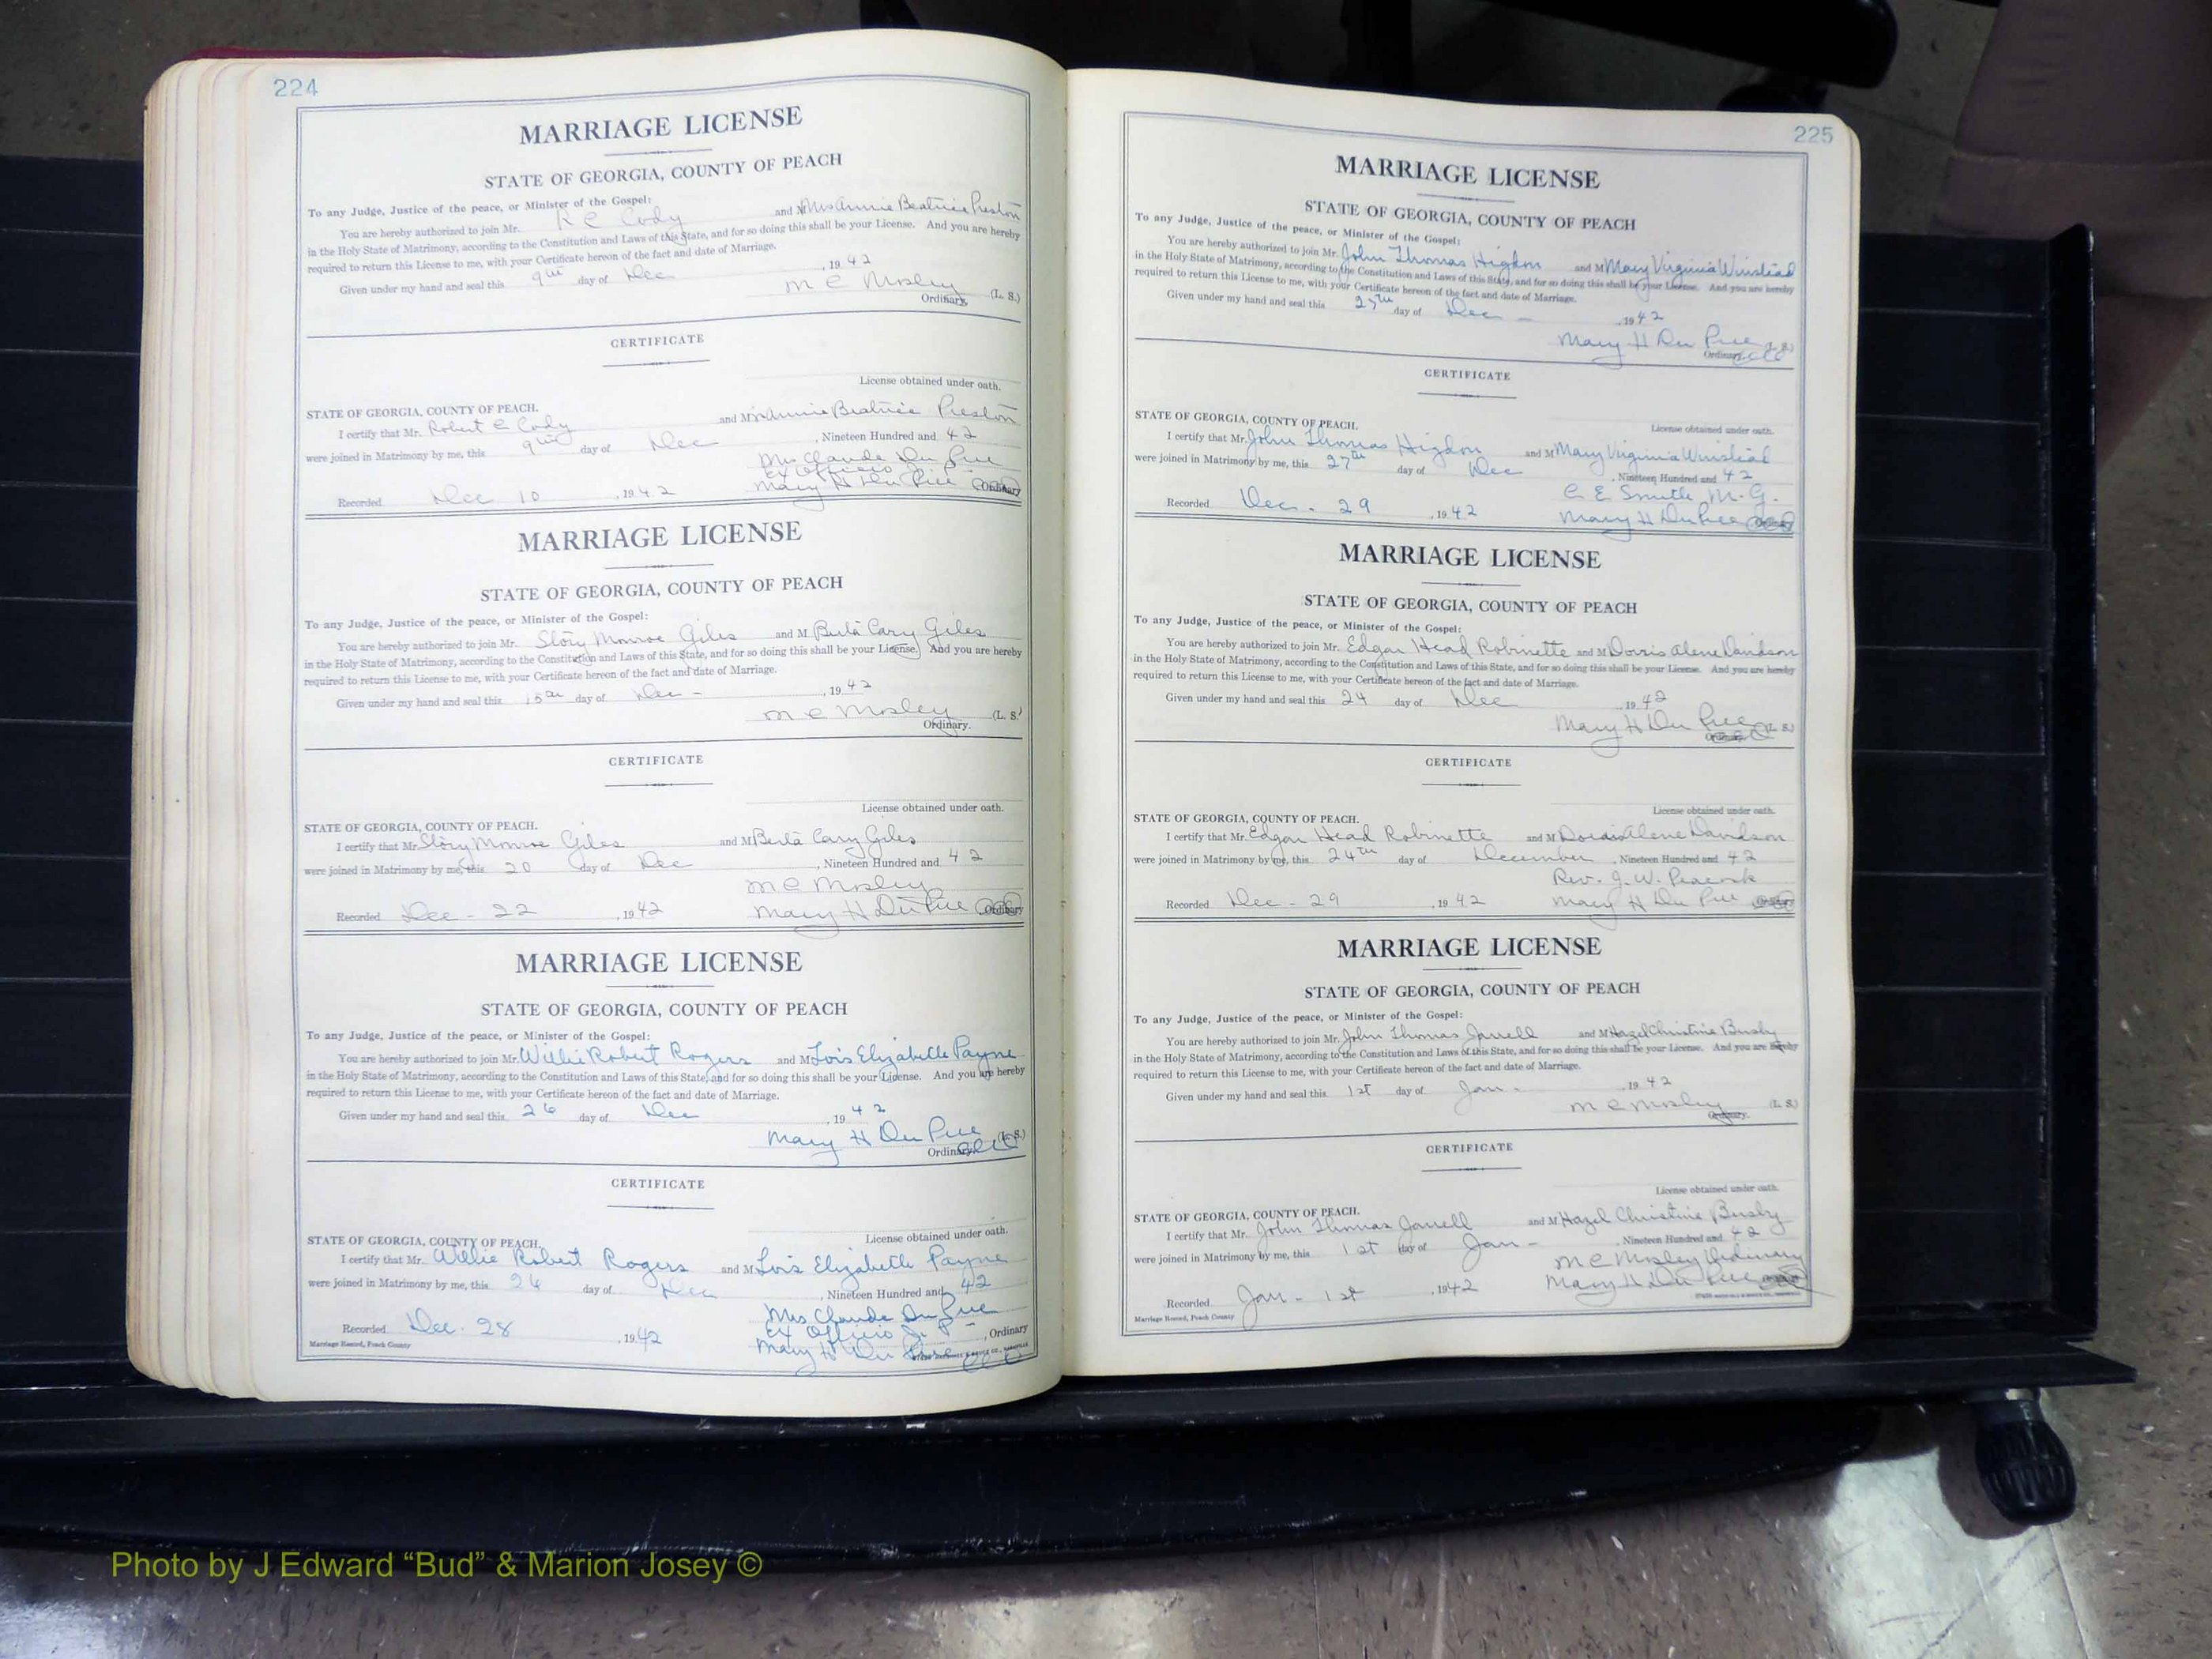 224
MARRIAGE LICENSE
STATE OF GEORGIA, COUNTY OF PEACH
To any Judge, Justice of the peace, or Minister of the Gospel:
You are hereby authorized to join Mr. R C Cody and Mrs Annie Beatrice Preston
in the Holy State of Matrimony, according to the Constitution and Laws of this State, and for so doing this shall be your License. And you are hereby
required to return this License to me, with your Certificate hereon of the fact and date of Marriage.
Given under my hand and seal this 9th day of Dec , 1942
M C Mosley (L. S.)
Ordinary.
CERTIFICATE
License obtained under oath.
STATE OF GEORGIA, COUNTY OF PEACH.
I certify that Mr. Robert C Cody and Mrs Annie Beatrice Preston
were joined in Matrimony by me, this 9th day of Dec , Nineteen Hundred and 42
Mrs Claude Du Pree
Ex Officio J. P.
Recorded Dec 10 , 1942 Mary H Du Pree Ordinary
MARRIAGE LICENSE
STATE OF GEORGIA, COUNTY OF PEACH
To any Judge, Justice of the peace, or Minister of the Gospel:
You are hereby authorized to join Mr. Story Monroe Giles and M Berta Cary Giles
in the Holy State of Matrimony, according to the Constitution and Laws of this State, and for so doing this shall be your License. And you are hereby
required to return this License to me, with your Certificate hereon of the fact and date of Marriage.
Given under my hand and seal this 15th day of Dec - , 1942
M C Mosley (L. S.)
Ordinary.
CERTIFICATE
License obtained under oath.
STATE OF GEORGIA, COUNTY OF PEACH.
I certify that Mr. Story Monroe Giles and M Berta Cary Giles
were joined in Matrimony by me, this 20 day of Dec , Nineteen Hundred and 42
M C Mosley
Recorded Dec - 22 , 1942 Mary H Du Pree Ordinary
MARRIAGE LICENSE
STATE OF GEORGIA, COUNTY OF PEACH
To any Judge, Justice of the peace, or Minister of the Gospel:
You are hereby authorized to join Mr. Willie Robert Rogers and M Lois Elizabeth Payne
in the Holy State of Matrimony, according to the Constitution and Laws of this State, and for so doing this shall be your License. And you are hereby
required to return this License to me, with your Certificate hereon of the fact and date of Marriage.
Given under my hand and seal this 26 day of Dec , 1942
Mary H Du Pree (L. S.)
Ordinary
CERTIFICATE
License obtained under oath.
STATE OF GEORGIA, COUNTY OF PEACH.
I certify that Mr. Willie Robert Rogers and M Lois Elizabeth Payne
were joined in Matrimony by me, this 26 day of Dec , Nineteen Hundred and 42
Mrs Claude Du Pree
Ex Officio J. P -
Recorded Dec. 28 , 1942 , Ordinary
Mary H Du Pree
Marriage Record, Peach County
225
MARRIAGE LICENSE
STATE OF GEORGIA, COUNTY OF PEACH
To any Judge, Justice of the peace, or Minister of the Gospel:
You are hereby authorized to join Mr. John Thomas Higdon and M Mary Virginia Winstead
in the Holy State of Matrimony, according to the Constitution and Laws of this State, and for so doing this shall be your License. And you are hereby
required to return this License to me, with your Certificate hereon of the fact and date of Marriage.
Given under my hand and seal this 27th day of Dec - , 1942
Mary H Du Pree (L. S.)
Ordinary
CERTIFICATE
License obtained under oath.
STATE OF GEORGIA, COUNTY OF PEACH.
I certify that Mr. John Thomas Higdon and M Mary Virginia Winstead
were joined in Matrimony by me, this 27th day of Dec , Nineteen Hundred and 42
C. E. Smith M. G.
Recorded Dec. 29 , 1942 Mary H Du Pree
MARRIAGE LICENSE
STATE OF GEORGIA, COUNTY OF PEACH
To any Judge, Justice of the peace, or Minister of the Gospel:
You are hereby authorized to join Mr. Edgar Head Robinette and M Dorris Alene Davidson
in the Holy State of Matrimony, according to the Constitution and Laws of this State, and for so doing this shall be your License. And you are hereby
required to return this License to me, with your Certificate hereon of the fact and date of Marriage.
Given under my hand and seal this 24 day of Dec , 1942
Mary H Du Pree (L. S.)
CERTIFICATE
License obtained under oath.
STATE OF GEORGIA, COUNTY OF PEACH.
I certify that Mr. Edgar Head Robinette and M Dorris Alene Davidson
were joined in Matrimony by me, this 24th day of December , Nineteen Hundred and 42
Rev. J. W. Peacock
Recorded Dec - 29 , 1942 Mary H Du Pree
MARRIAGE LICENSE
STATE OF GEORGIA, COUNTY OF PEACH
To any Judge, Justice of the peace, or Minister of the Gospel:
You are hereby authorized to join Mr. John Thomas Jarrell and M Hazel Christine Busby
in the Holy State of Matrimony, according to the Constitution and Laws of this State, and for so doing this shall be your License. And you are hereby
required to return this License to me, with your Certificate hereon of the fact and date of Marriage.
Given under my hand and seal this 1st day of Jan - , 1942
M C Mosley (L. S.)
Ordinary.
CERTIFICATE
License obtained under oath.
STATE OF GEORGIA, COUNTY OF PEACH.
I certify that Mr. John Thomas Jarrell and M Hazel Christine Busby
were joined in Matrimony by me, this 1st day of Jan - , Nineteen Hundred and 42
M C Mosley Ordinary
Recorded Jan - 1st , 1942 Mary H Du Pree
Marriage Record, Peach County
Photo by J Edward “Bud” & Marion Josey ©